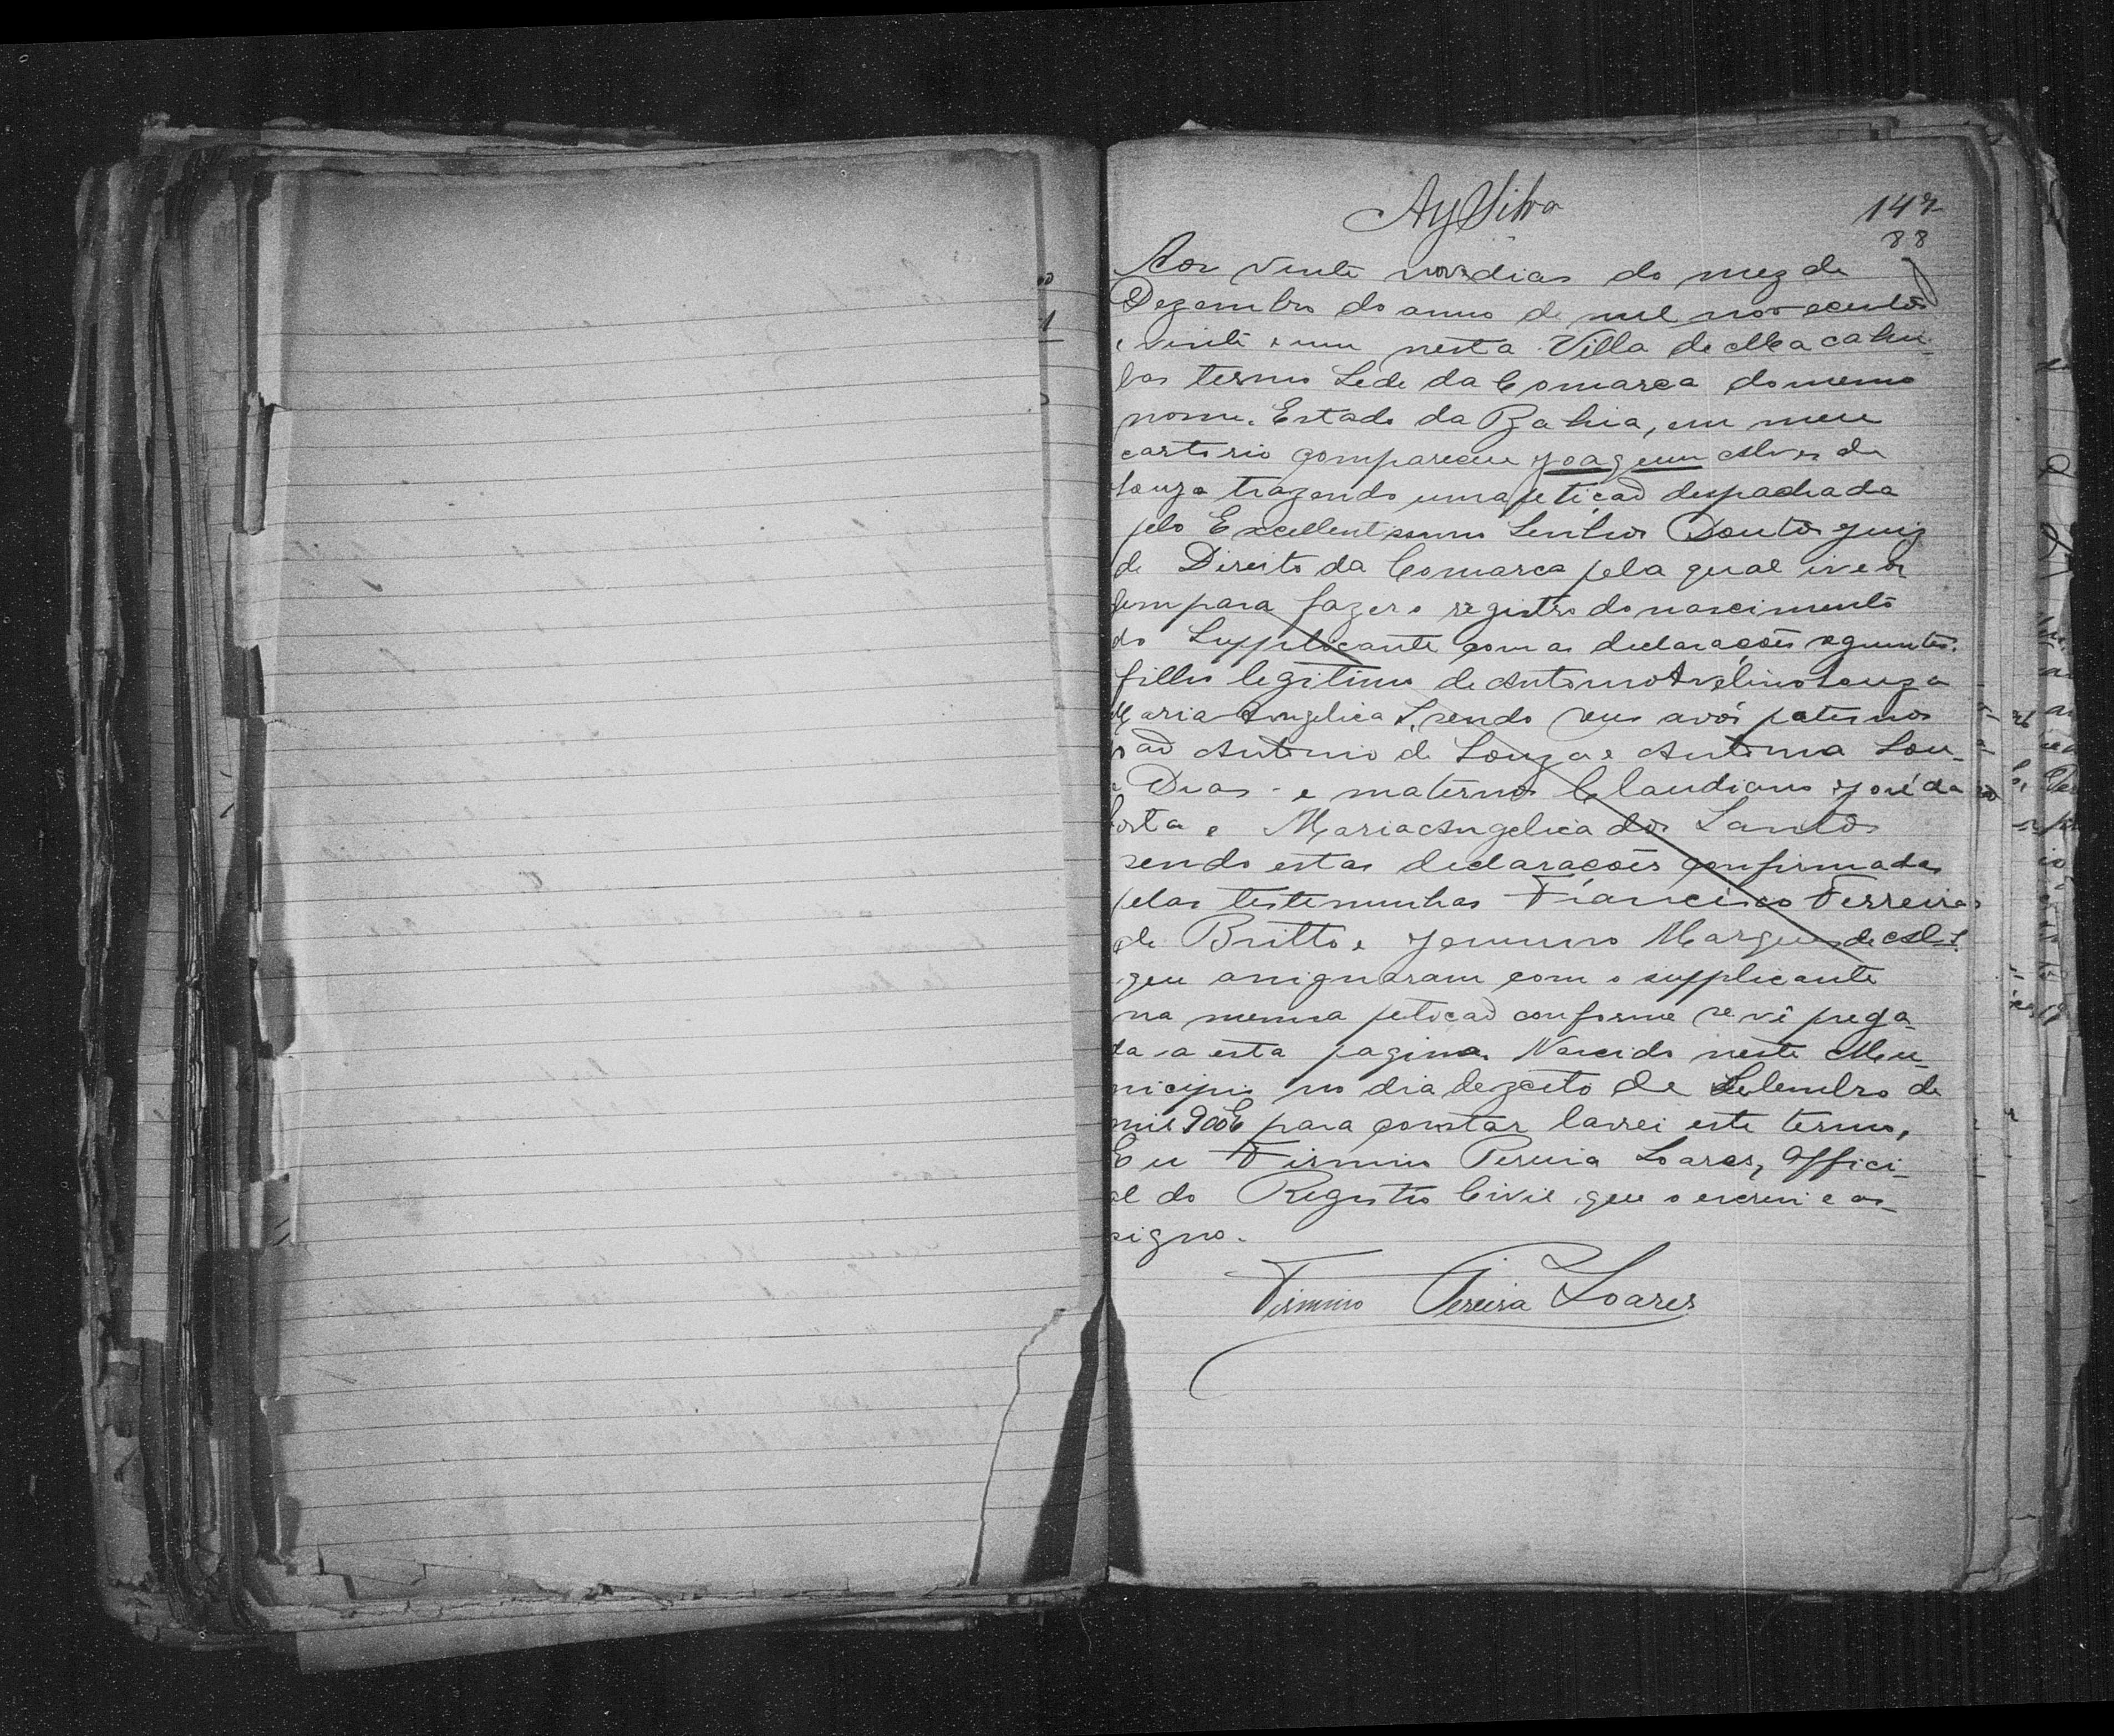 AySilva
147
88
Aos vinte nove dias do mez de
Dezembro do anno de mil novecentos
e vinte e um nesta Villa de Macahu-
bas termo Sede da Comarca do mesmo
nome. Estado da Bahia, em meu
cartorio compareceu Joaquim Alves de
Souza trazendo uma petição despachada
pelo Excellentissimo Senhor Doutor Juiz
de Direito da Comarca pela qual
para fazer o registro do nascimento
do Supplicante com as declarações seguintes:
filho legitimo de Antonio Avelino Souza
Maria Angelica S, sendo seus avós paternos
Antonio de Souza e Antonia Sou-
Dias - e maternos Claudiano José da
Costa e Maria Angelica dos Santos
sendo estas declarações confirmadas
pelas testemunhas Francisco Ferreira
de Britto e Jenuino Marques de
que assignaram com o supplicante
na mesma petição conforme se vê prega-
da a esta pagina. Nascido neste Mu-
nicipio no dia dezoito de Setembro de
mil 900 E para constar lavrei este termo,
Eu Firmino Pereira Soares, Offici-
al do Registro Civil que o escrevi e as-
signo.
Firmino Pereira Soares